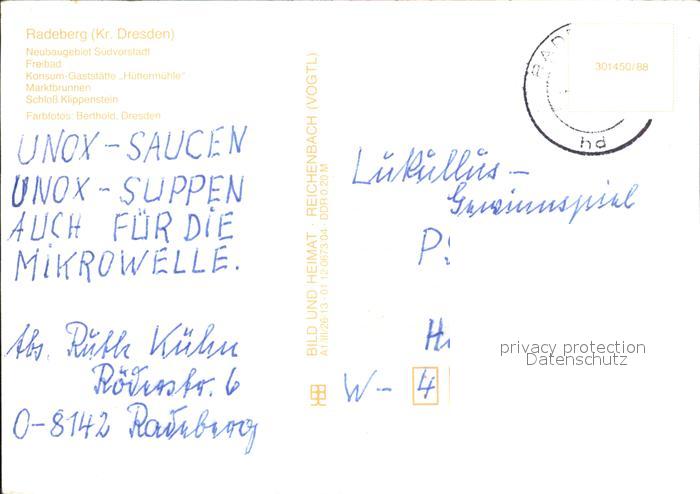 Radeberg (Kr. Dresden)
Neubaugebiet Südvorstadt
Freibad
Konsum-Gaststätte „Hüttermühle“
Marktbrunnen
Schloß Klippenstein
Farbfotos: Berthold, Dresden
UNOX - SAUCEN
UNOX - SUPPEN
AUCH FÜR DIE
MIKROWELLE.
Abs. Ruth Kühn
Röderstr. 6
O-8142 Radeberg
BILD UND HEIMAT · REICHENBACH (VOGTL)
A1/III/26-13 · 01 12 0673 04 · DDR 0,20 M
301450/88
hd
Lukullus-
Gewinnspiel
W- 4
privacy protection
Datenschutz